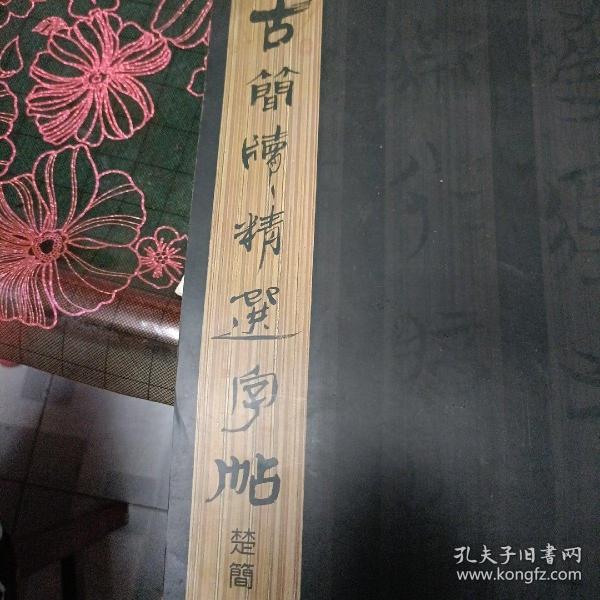 古簡牘精選字帖
楚簡
孔夫子旧書网
www.kongfz.com